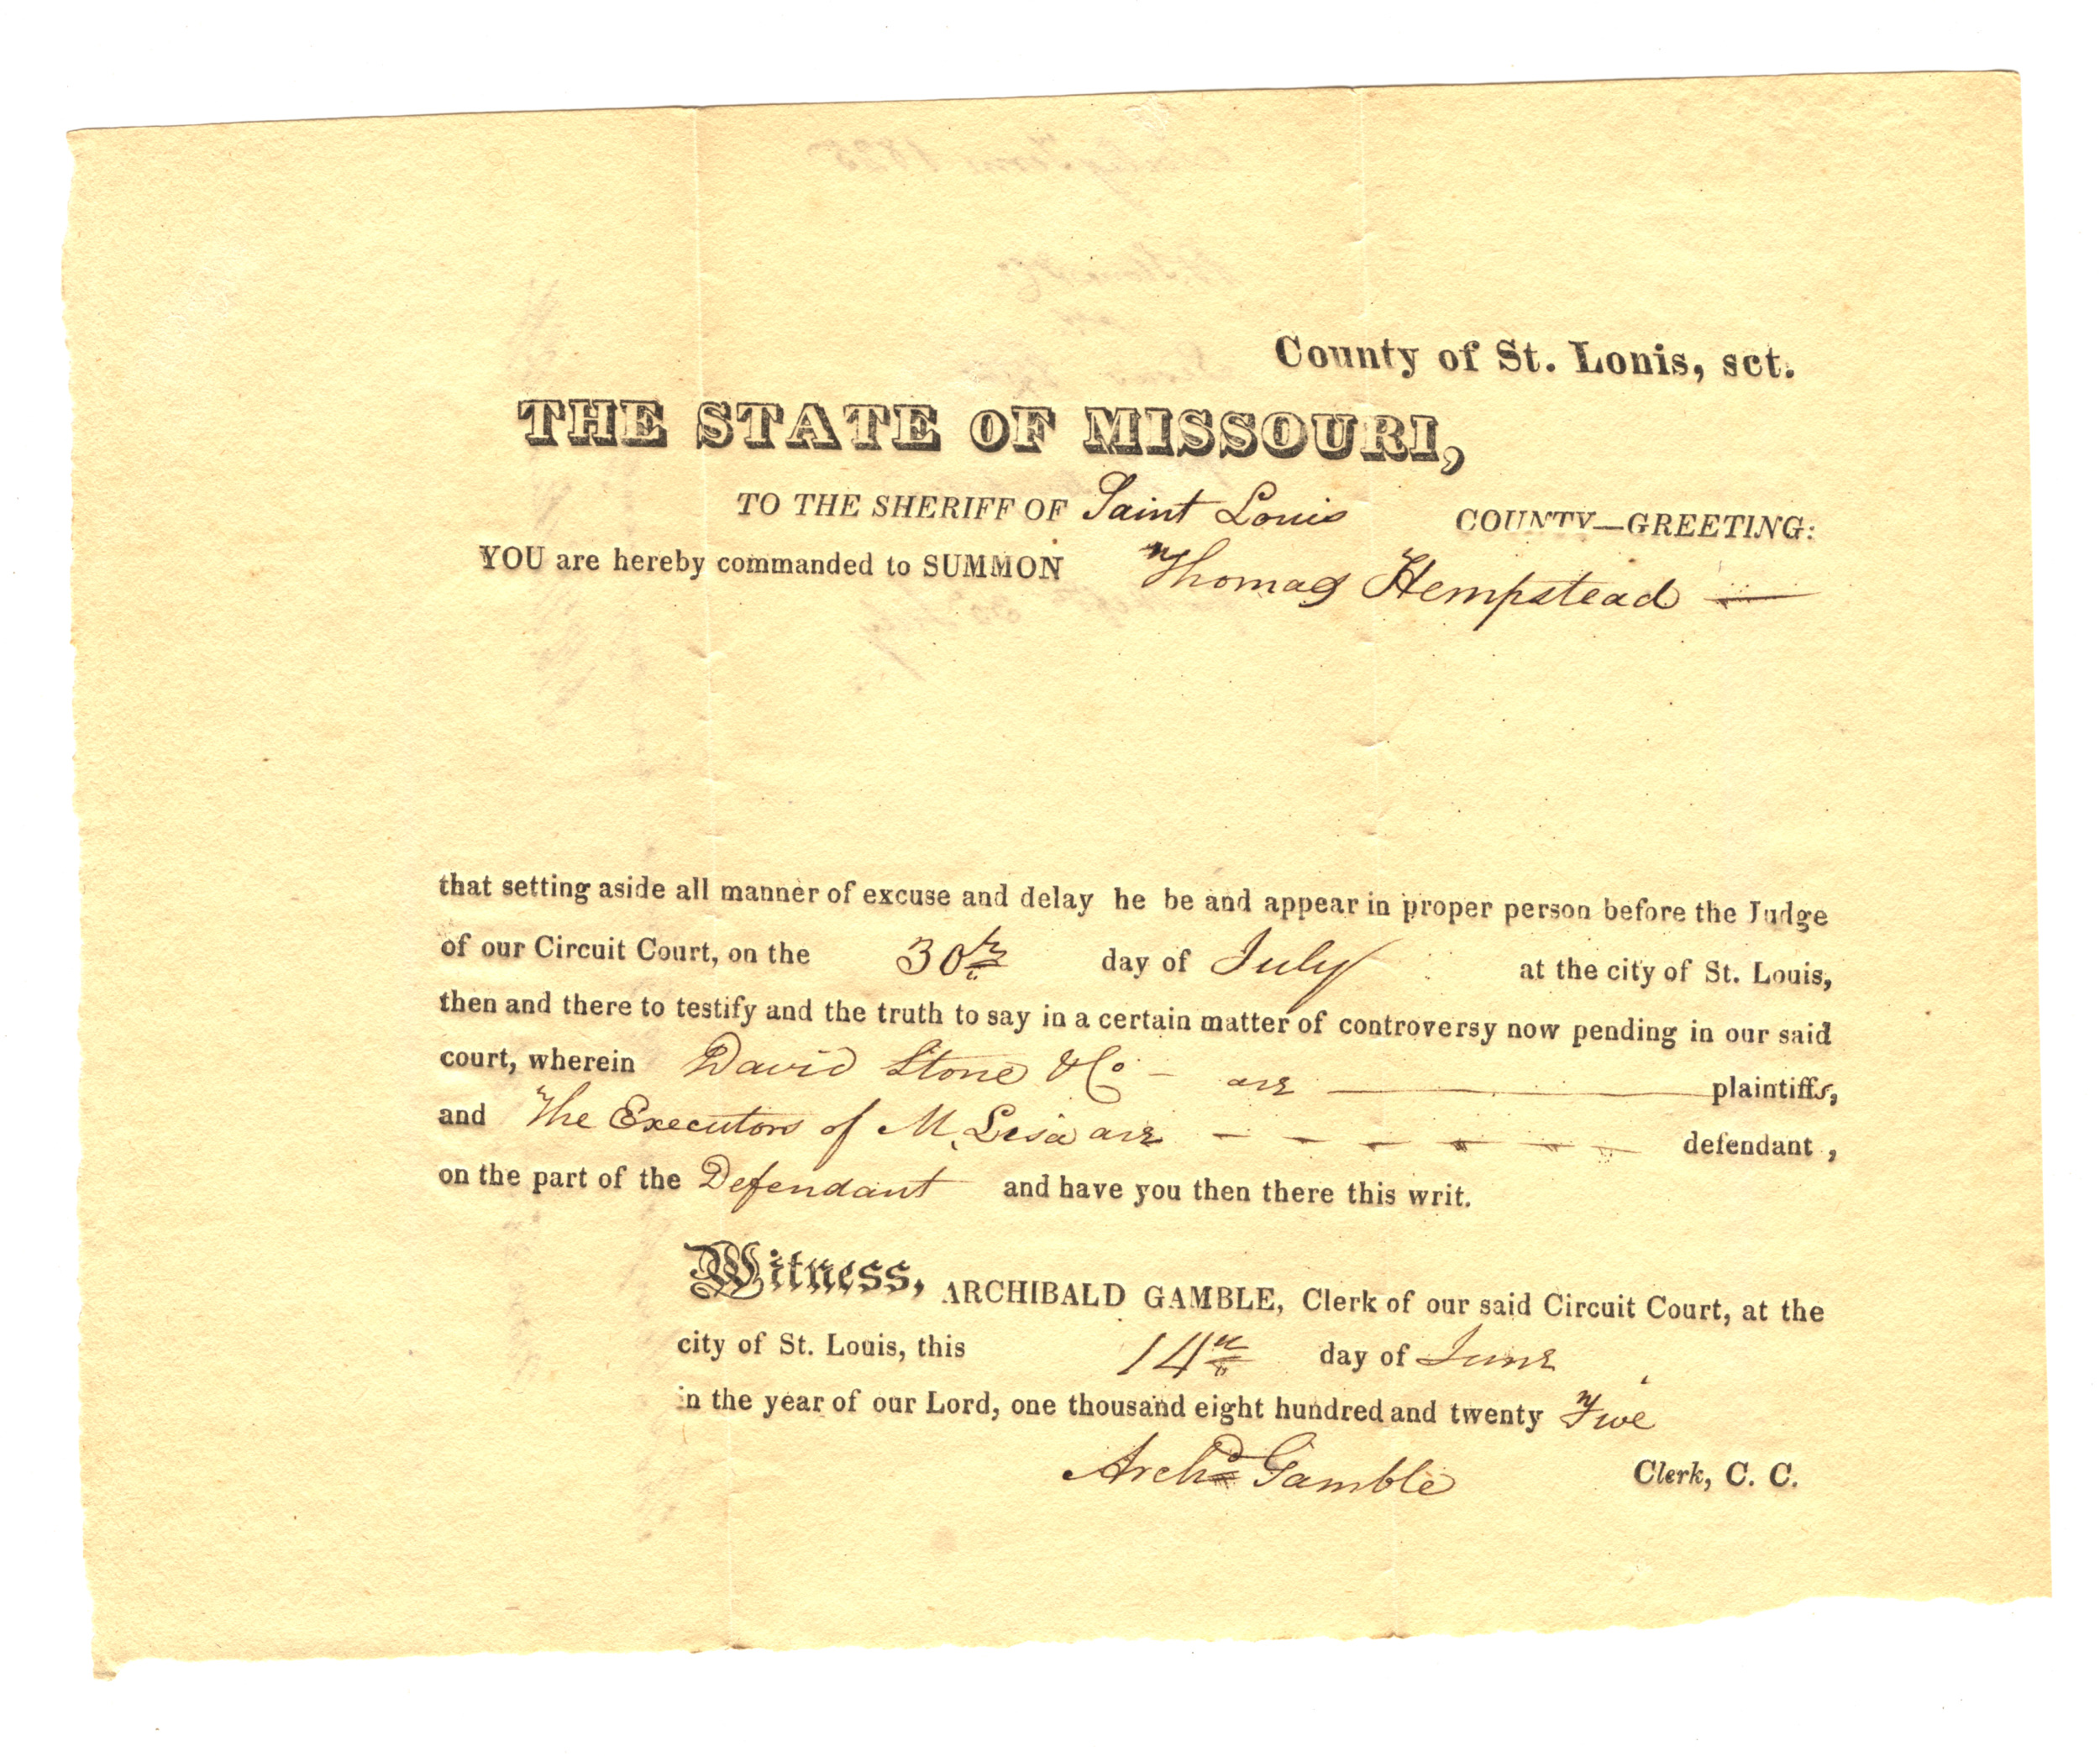 County of St. Lonis, sct.
THE STATE OF MISSOURI,
TO THE SHERIFF OF Saint Louis COUNTY—GREETING:
YOU are hereby commanded to SUMMON Thomas Hempstead —
that setting aside all manner of excuse and delay he be and appear in proper person before the Judge
of our Circuit Court, on the 30th day of July at the city of St. Louis,
then and there to testify and the truth to say in a certain matter of controversy now pending in our said
court, wherein David Stone & Co - are — plaintiffs,
and The Executors of M. Lisa are - - - - - - - defendant ,
on the part of the Defendant and have you then there this writ.
Witness, ARCHIBALD GAMBLE, Clerk of our said Circuit Court, at the
city of St. Louis, this 14th day of June
in the year of our Lord, one thousand eight hundred and twenty Five
Archd Gamble Clerk, C. C.